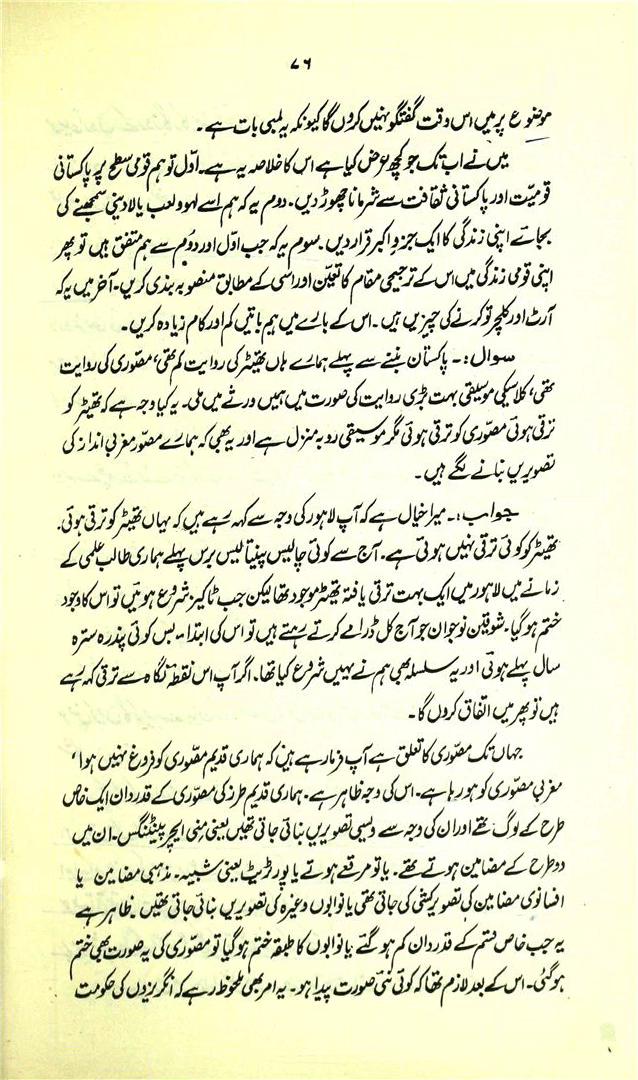 ۷۶
موضوع پر میں اس وقت گفتگو نہیں کروں گا کیونکہ یہ لمبی بات ہے۔
میں نے اب تک جو کچھ عرض کیا ہے اس کا خلاصہ یہ ہے۔ اوّل تو ہم قومی سطح پر پاکستانی
قومیّت اور پاکستانی ثقافت سے شرمانا چھوڑ دیں۔ دوم یہ کہ ہم اسے لہو و لعب یا لادینی سمجھنے کی
بجائے اپنی زندگی کا ایک جزوِ اکبر قرار دیں۔ سوم یہ کہ جب اوّل اور دوُم سے ہم متفق ہیں تو پھر
اپنی قومی زندگی میں اس کے ترجیحی مقام کا تعیّن اور اسی کے مطابق منصوبہ بندی کریں۔ آخر میں یہ کہ
آرٹ اور کلچر تو کرنے کی چیزیں ہیں۔ اس کے بارے میں ہم باتیں کم اور کام زیادہ کریں۔
سوال:۔ پاکستان بننے سے پہلے ہمارے ہاں تھیٹر کی روایت کم تھی، مصوّری کی روایت
تھی، کلاسیکی موسیقی بہت بڑی روایت کی صورت میں ہمیں ورثے میں ملی۔ یہ کیا وجہ ہے کہ تھیٹر کو
ترقی ہوئی مصوّری کو ترقی ہوئی مگر موسیقی رو بہ منزل ہے اور یہ بھی کہ ہمارے مصوّر مغربی انداز کی
تصویریں بنانے لگے ہیں۔
جواب:۔ میرا خیال ہے کہ آپ لاہور کی وجہ سے کہہ رہے ہیں کہ یہاں تھیٹر کو ترقی ہوئی۔
تھیٹر کو کوئی ترقی نہیں ہوئی ہے۔ آج سے کوئی چالیس پینتالیس برس پہلے ہماری طالب علمی کے
زمانے میں لاہور میں ایک بہت ترقی یافتہ تھیٹر موجود تھا لیکن جب ٹاکیز شروع ہوئیں تو اس کا وجود
ختم ہو گیا۔ شوقین نوجوان جو آج کل ڈرامے کرتے رہتے ہیں تو اس کی ابتداء بس کوئی پندرہ سترہ
سال پہلے ہوئی اور یہ سلسلہ بھی ہم نے نہیں شروع کیا تھا۔ اگر آپ اس نقطۂ نگاہ سے ترقی کہہ رہے
ہیں تو پھر میں اتفاق کروں گا۔
جہاں تک مصوّری کا تعلق ہے آپ فرما رہے ہیں کہ ہماری قدیم مصوّری کو فروغ نہیں ہوا،
مغربی مصوّری کو ہو رہا ہے۔ اس کی وجہ ظاہر ہے۔ ہماری قدیم طرز کی مصوّری کے قدردان ایک خاص
طرح کے لوگ تھے اور ان کی وجہ سے ویسی تصویریں بنائی جاتی تھیں یعنی منی ایچر پینٹنگس۔ ان میں
دو طرح کے مضامین ہوتے تھے۔ یا تو مرقعے ہوتے یا پورٹریٹ یعنی شبیہ۔ مذہبی مضامین یا
افسانوی مضامین کی تصویر کشی کی جاتی تھی یا نوابوں وغیرہ کی تصویریں بنائی جاتی تھیں۔ ظاہر ہے
یہ جب خاص قسم کے قدردان کم ہو گئے یا نوابوں کا طبقہ ختم ہو گیا تو مصوّری کی یہ صورت بھی ختم
ہو گئی۔ اس کے بعد لازم تھا کہ کوئی نئی صورت پیدا ہو۔ یہ امر بھی ملحوظ رہے کہ انگریزوں کی حکومت